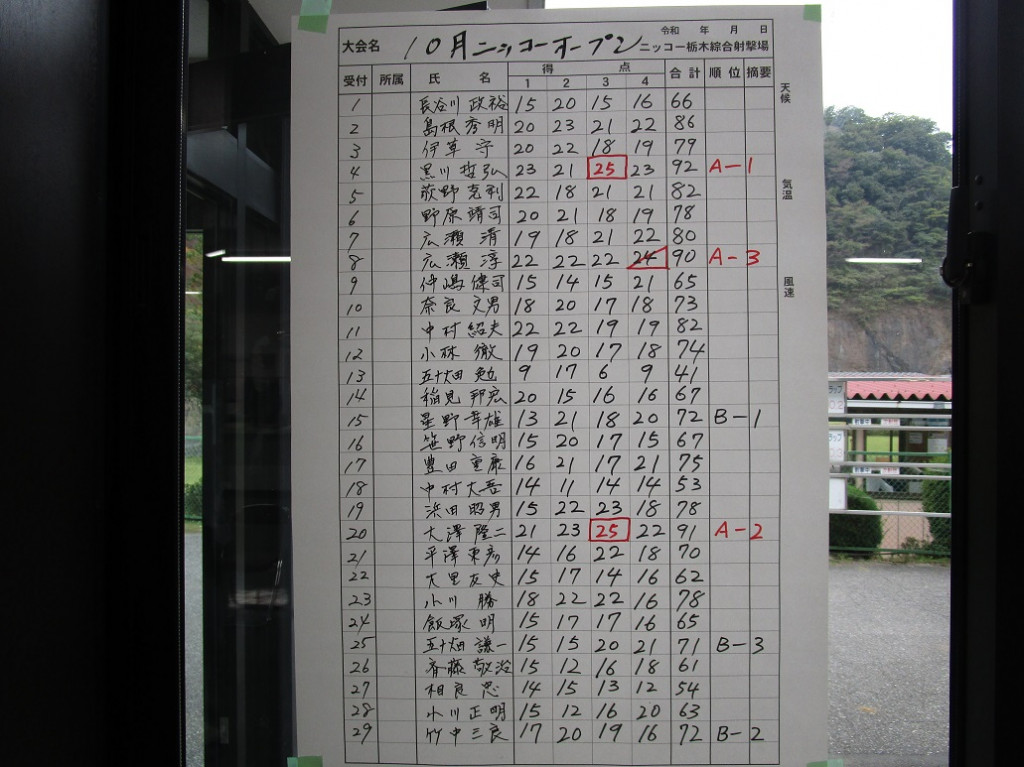 令和 年 月 日
大会名 10月ニッコーオープン ニッコー栃木綜合射撃場
受付 所属 氏名 得点 合計 順位 摘要
1 2 3 4
天候
気温
風速
1 長谷川 政裕 15 20 15 16 66
2 島根 秀明 20 23 21 22 86
3 伊草 守 20 22 18 19 79
4 黒川 哲弘 23 21 25 23 92 A-1
5 荻野 克利 22 18 21 21 82
6 野原 靖司 20 21 18 19 78
7 広瀬 清 19 18 21 22 80
8 広瀬 淳 22 22 22 24 90 A-3
9 仲嶋 健司 15 14 15 21 65
10 奈良 文男 18 20 17 18 73
11 中村 紹夫 22 22 19 19 82
12 小林 徹 19 20 17 18 74
13 五十畑 勉 9 17 6 9 41
14 稲見 邦宏 20 15 16 16 67
15 星野 幸雄 13 21 18 20 72 B-1
16 笹野 信明 15 20 17 15 67
17 豊田 重巌 16 21 17 21 75
18 中村 大吾 14 11 14 14 53
19 浜田 昭男 15 22 23 18 78
20 大澤 隆二 21 23 25 22 91 A-2
21 平澤 東彦 14 16 22 18 70
22 大里 友史 15 17 14 16 62
23 小川 勝 18 22 22 16 78
24 飯塚 明 15 17 17 16 65
25 五十畑 譲一 15 15 20 21 71 B-3
26 斉藤 敬治 15 12 16 18 61
27 相良 忠 14 15 13 12 54
28 小川 正明 15 12 16 20 63
29 竹中 三良 17 20 19 16 72 B-2